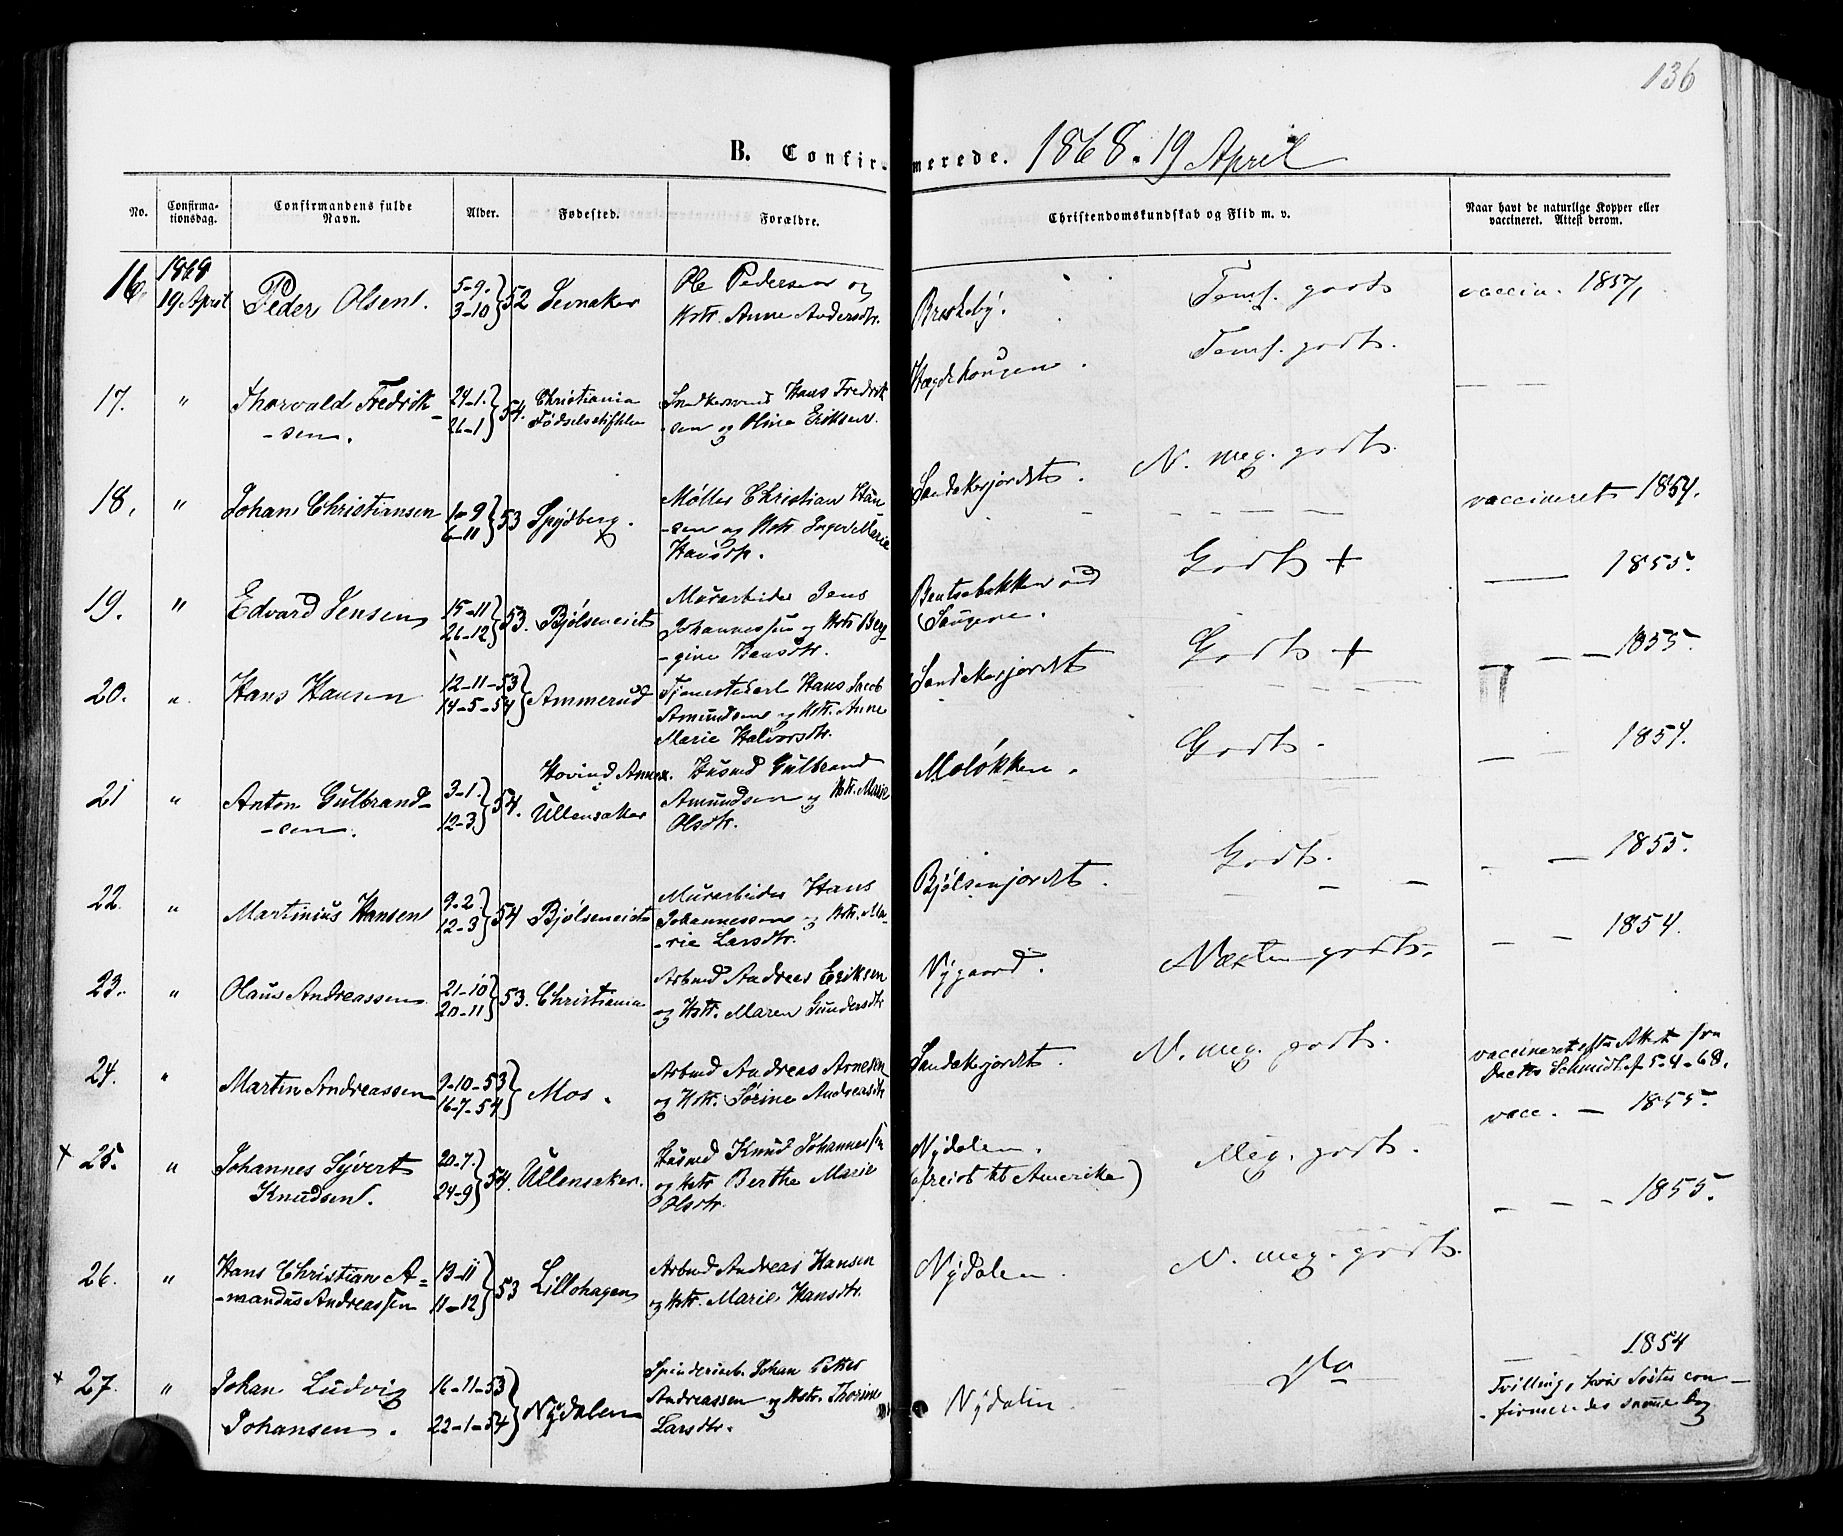 136
B. Confirmerede. 1868. 19 April
No.
Confirmationsdag.
Confirmandens fulde Navn.
Alder.
Fødested.
Forældre.
Christendomskundskab og Flid m. v.
Naar havt de naturlige Kopper eller vaccineret. Attest derom.
16. 1868 19 April Peder Olsen. 5-9. 3-10 } 52 Jevnaker Ole Pedersen og Hstr. Anne Andersdtr. Briskeby. Teml. godt vaccin. 1857
17. " Thorvald Fredrik- -sen. 24-1. 26-1 } 54. Christiania Fødselsstiftelse Snedkersvend Hans Fredrik -sen og Oline Eriksen. Hægdehaugen. Teml. godt. — —
18. " Johan Christiansen 1-9 6-11 } 53 Spydberg. Møller Christian Han- -sen og Hstr. Inger Marie Hansdtr. Sandakerjordet. N. meg. godt. vaccineret 1854.
19. " Edvard Jensen 15-11 26-12 } 53. Bjølseneiet Murarbeider Jens Johannessen og Hstr. Ber- -gine Hansdtr. Bentsebakken ved Saugene. Godt + — 1855.
20. " Hans Hansen 12-11-53 14-5-54 } Ammerud Tjenestekarl Hans Jacob Amundsen og Hstr. Anne Marie Halvorsdtr. Sandakerjordet Godt + — — — 1855.
21 " Anton Gulbrand- -sen. 3-1. 12-3 } 54. Hovind Annex. Ullensaker Husmd Gulbrand Amundsen og Hstr. Marie Olsdtr. Moløkken. Godt. — — 1854.
22. " Martinius Hansen 9-2. 12-3 } 54 Bjølseneiet Murarbeider Hans Johannessen og Hstr. Ma- -rie Larsdtr. Bjølsenjordet. Godt. — — 1855.
23. " Olaus Andreassen 21-10 20-11 } 53. Christiania Arbmd Andreas Eriksen og Hstr. Maren Gundersdtr Nygaard. Næsten godt. — — 1854.
24. " Martin Andreassen 9-10-53 16-7-54 } Mos. Arbmd Andreas Arnesen og Hstr. Sørine Andreasdtr Sandakerjordet. N. meg. godt. vaccineret efter Attest fra Doctor Schmidt af 5-4-68.
+ 25. " Johannes Syvert Knudsen. 20-7. 24-9 } 54. Ullensaker. Husmd Knud Johannessen og Hstr Berthe Marie Olsdtr. Nydalen. (afreist til Amerika) Meg. godt. vacc. — 1855.
26. " Hans Christian A- -mandus Andreassen 13-11 11-12 } 53 Lillohagen Arbmd Andreas Hansen og Hstr. Marie Hansdtr. Nydalen. N. meg. godt. — — — 1855.
+ 27. " Johan Ludvig Johansen. 16-11-53 22-1-54 } Nydalen Spinderiarb. Johan Petter Andreassen og Hstr. Thorine Larsdtr. Nydalen. Do — — 1854 Tvilling, hvis Søster con- -firmeredes samme Dag